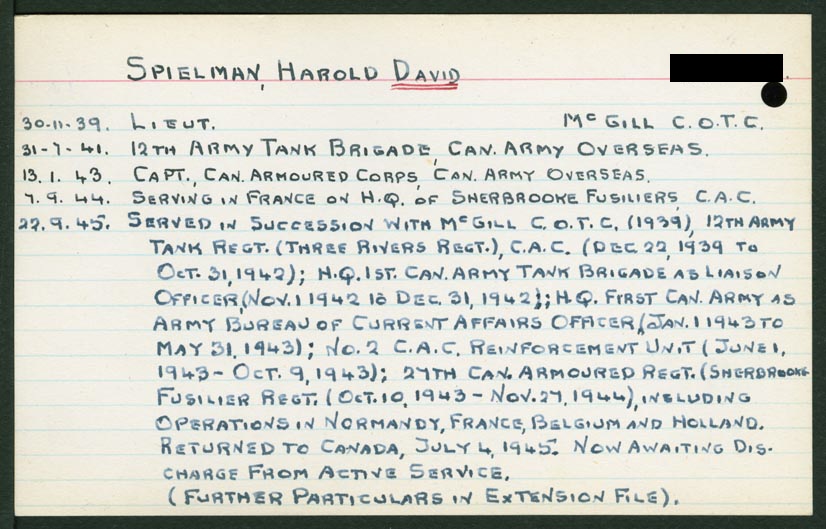 SPIELMAN, HAROLD DAVID
30-11-39. LIEUT. McGILL C.O.T.C.
31-7-41. 12TH ARMY TANK BRIGADE, CAN. ARMY OVERSEAS.
13.1.43. CAPT., CAN. ARMOURED CORPS, CAN. ARMY OVERSEAS.
7.9.44. SERVING IN FRANCE ON H.Q. OF SHERBROOKE FUSILIERS, C.A.C.
22.9.45. SERVED IN SUCCESSION WITH McGILL C.O.T.C. (1939), 12TH ARMY
TANK REGT. (THREE RIVERS REGT.), C.A.C. (DEC 22, 1939 TO
OCT. 31, 1942); H.Q. 1ST. CAN. ARMY TANK BRIGADE AS LIAISON
OFFICER, (NOV. 1 1942 TO DEC. 31, 1942); H.Q. FIRST CAN. ARMY AS
ARMY BUREAU OF CURRENT AFFAIRS OFFICER, (JAN. 1 1943 TO
MAY 31, 1943); NO. 2 C.A.C. REINFORCEMENT UNIT (JUNE 1,
1943 - OCT. 9, 1943); 27TH CAN. ARMOURED REGT. (SHERBROOKE
FUSILIER REGT. (OCT. 10, 1943 - NOV. 27, 1944), INCLUDING
OPERATIONS IN NORMANDY, FRANCE, BELGIUM AND HOLLAND.
RETURNED TO CANADA, JULY 4, 1945. NOW AWAITING DIS-
CHARGE FROM ACTIVE SERVICE.
(FURTHER PARTICULARS IN EXTENSION FILE).